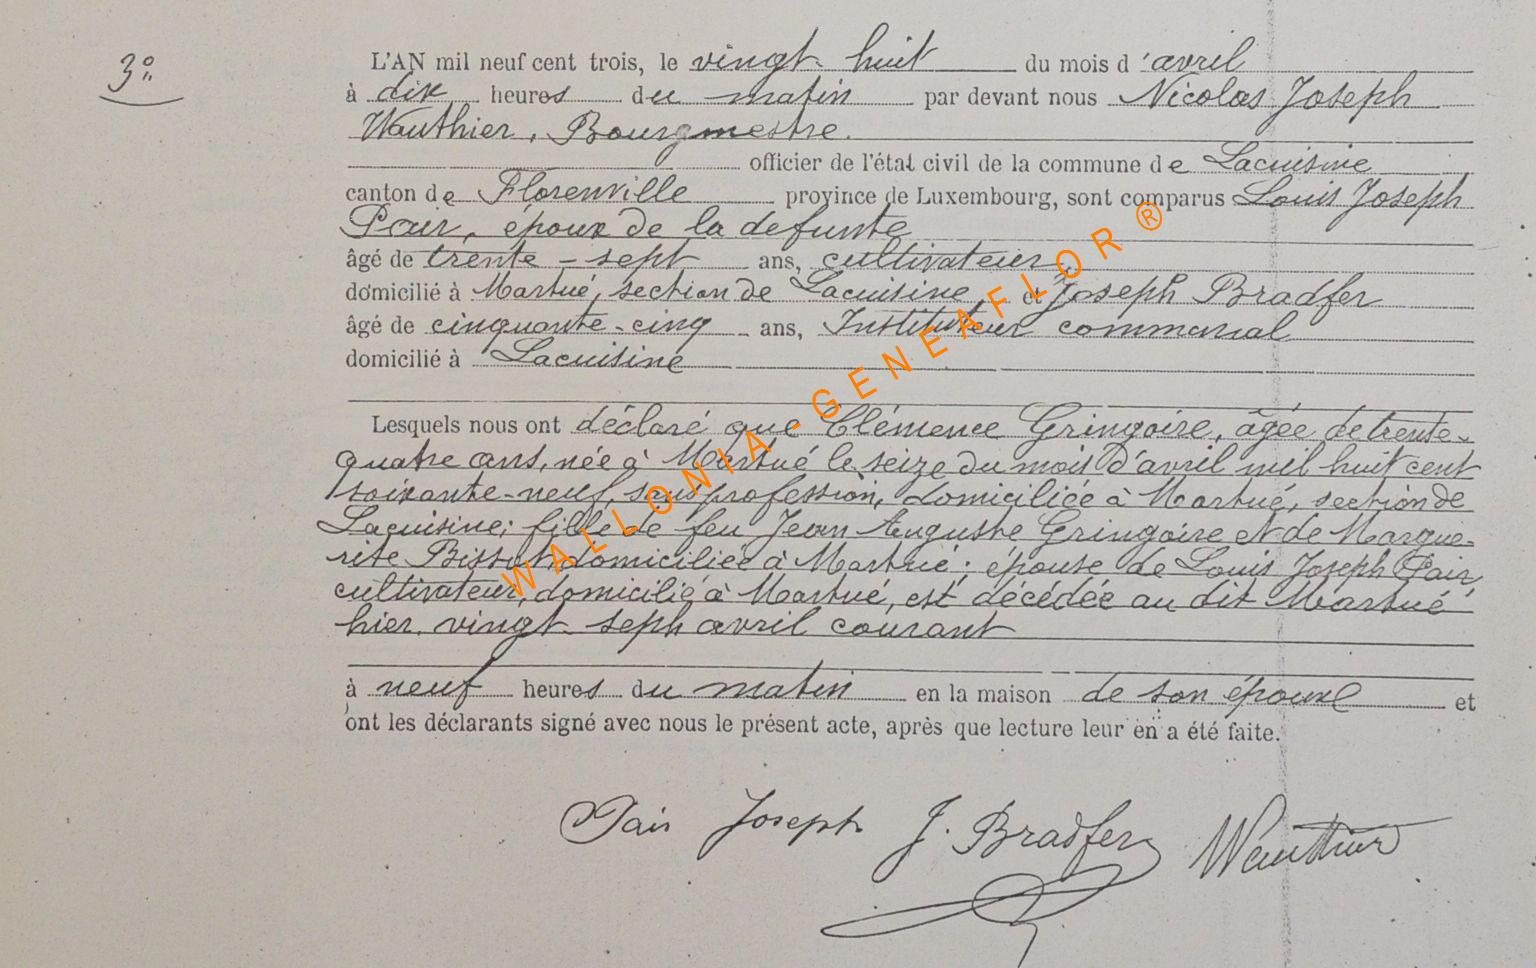 3°
L'AN mil neuf cent trois, le vingt-huit du mois d'avril
à dix heures du matin par devant nous Nicolas Joseph
Wauthier, Bourgmestre.
officier de l'état civil de la commune de Lacuisine
canton de Florenville province de Luxembourg, sont comparus Louis Joseph
Pair, époux de la defunte
âgé de trente-sept ans, cultivateur,
domicilié à Martué, section de Lacuisine, et Joseph Bradfer
âgé de cinquante-cinq ans, Instituteur communal
domicilié à Lacuisine
Lesquels nous ont déclaré que Clémence Gringoire, âgée de trente-
quatre ans, née à Martué le seize du mois d'avril mil huit cent
soixante-neuf, sans profession, domiciliée à Martué, section de
Lacuisine; fille de feu Jean Auguste Gringoire et de Margue-
rite domiciliée à Martué; épouse de Louis Joseph Pair,
cultivateur, domicilié à Martué, est décédée au dit Martué
hier vingt-sept avril courant
à neuf heures du matin en la maison de son époux et
ont les déclarants signé avec nous le présent acte, après que lecture leur en a été faite.
Pair Joseph J. Bradfer Wauthier
WALLONIA-GENEAFLOR ®